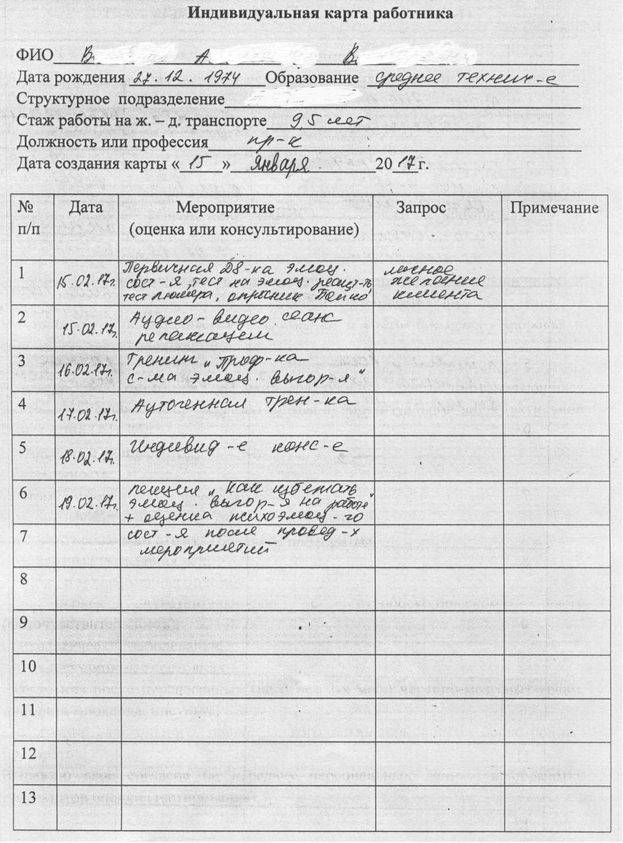 Индивидуальная карта работника
ФИО В А В
Дата рождения 27.12.1974 Образование среднее технич-е
Структурное подразделение
Стаж работы на ж. – д. транспорте 9,5 лет
Должность или профессия пр-к
Дата создания карты « 15 » января 20 17 г.
№ п/п Дата Мероприятие (оценка или консультирование) Запрос Примечание
1 15.02.17г. Первичная DS-ка эмоц. личное
сост-я, тест на эмоц. реакт-ть желание
тест Люшера, опросник Бойко клиента
2 15.02.17г. Аудио-видео сеанс
релаксации
3 16.02.17г. Тренинг „Проф-ка
с-ма эмоц. выгор-я"
4 17.02.17г. Аутогенная трен-ка
5 18.02.17г. Индивид-е конс-е
6 19.02.17г. лекция „Как избежать
эмоц. выгор-я на работе"
+ оценка психоэмоц-го
7 сост-я после провед-х
мероприятий
8
9
10
11
12
13